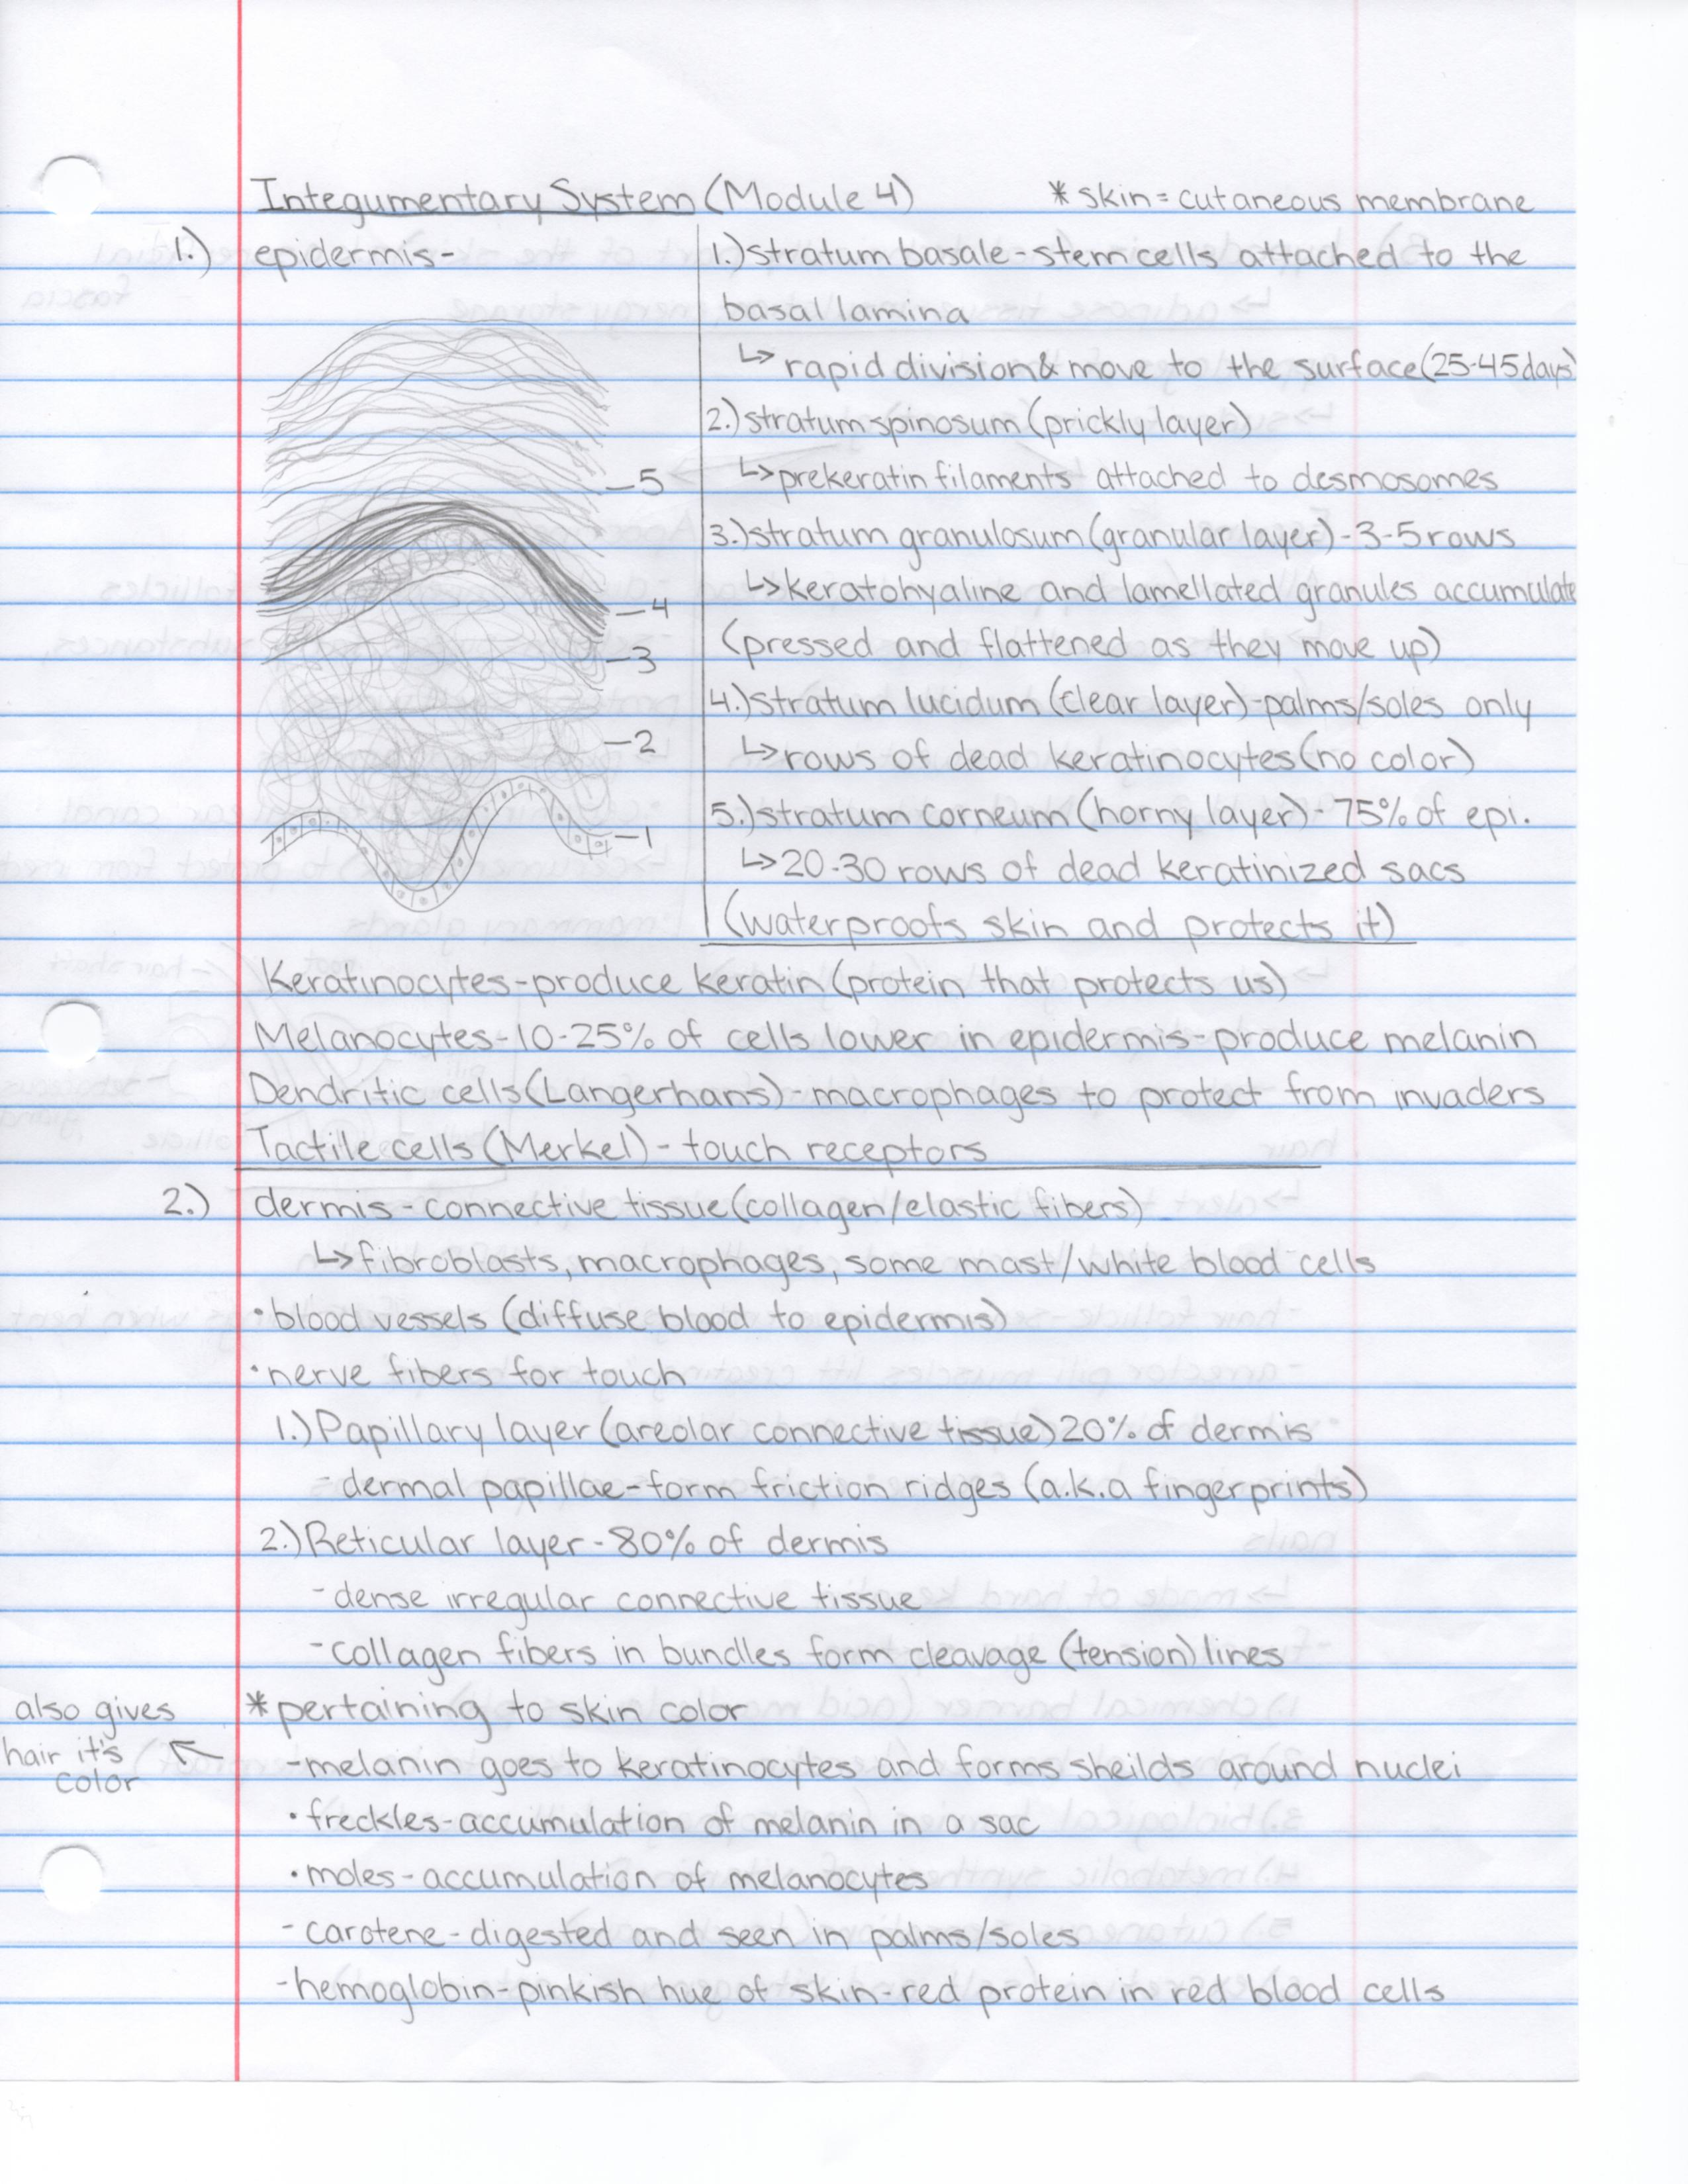 Integumentary System (Module 4) * skin = cutaneous membrane
1.) epidermis-
1.) stratum basale - stem cells attached to the
basal lamina
↳ rapid division & move to the surface (25-45 days)
2.) stratum spinosum (prickly layer)
↳ prekeratin filaments attached to desmosomes
3.) stratum granulosum (granular layer) - 3-5 rows
↳ keratohyaline and lamellated granules accumulate
(pressed and flattened as they move up)
4.) stratum lucidum (clear layer) - palms/soles only
↳ rows of dead keratinocytes (no color)
5.) stratum corneum (horny layer) - 75% of epi.
↳ 20-30 rows of dead keratinized sacs
(waterproofs skin and protects it)
5
4
3
2
1
Keratinocytes - produce keratin (protein that protects us)
Melanocytes - 10-25% of cells lower in epidermis - produce melanin
Dendritic cells (Langerhans) - macrophages to protect from invaders
Tactile cells (Merkel) - touch receptors
2.) dermis - connective tissue (collagen/elastic fibers)
↳ fibroblasts, macrophages, some mast/white blood cells
• blood vessels (diffuse blood to epidermis)
• nerve fibers for touch
1.) Papillary layer (areolar connective tissue) 20% of dermis
- dermal papillae - form friction ridges (a.k.a fingerprints)
2.) Reticular layer - 80% of dermis
- dense irregular connective tissue
- collagen fibers in bundles form cleavage (tension) lines
* pertaining to skin color
- melanin goes to keratinocytes and forms sheilds around nuclei
also gives
hair it's
color
• freckles - accumulation of melanin in a sac
• moles - accumulation of melanocytes
- carotene - digested and seen in palms/soles
- hemoglobin - pinkish hue of skin - red protein in red blood cells